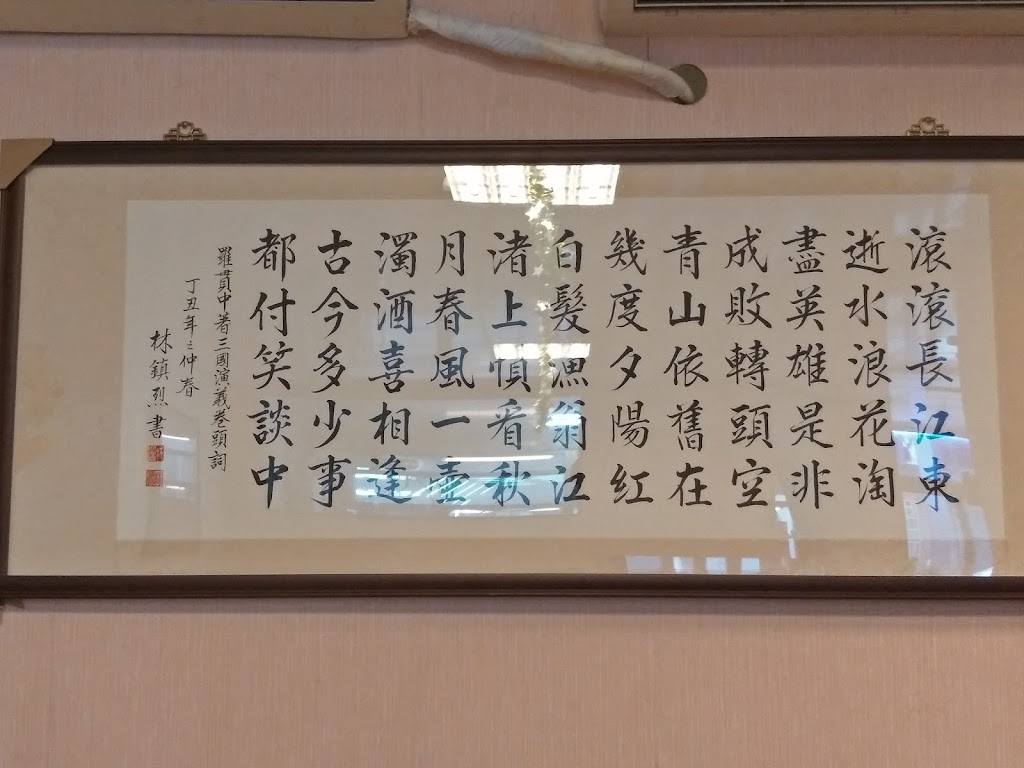 滾滾長江東
逝水浪花淘
盡英雄是非
成敗轉頭空
青山依舊在
幾度夕陽紅
白髮漁翁江
渚上慣看秋
月春風一壺
濁酒喜相逢
古今多少事
都付笑談中
羅貫中著三國演義卷頭詞
丁丑年之仲春
林鎮烈書